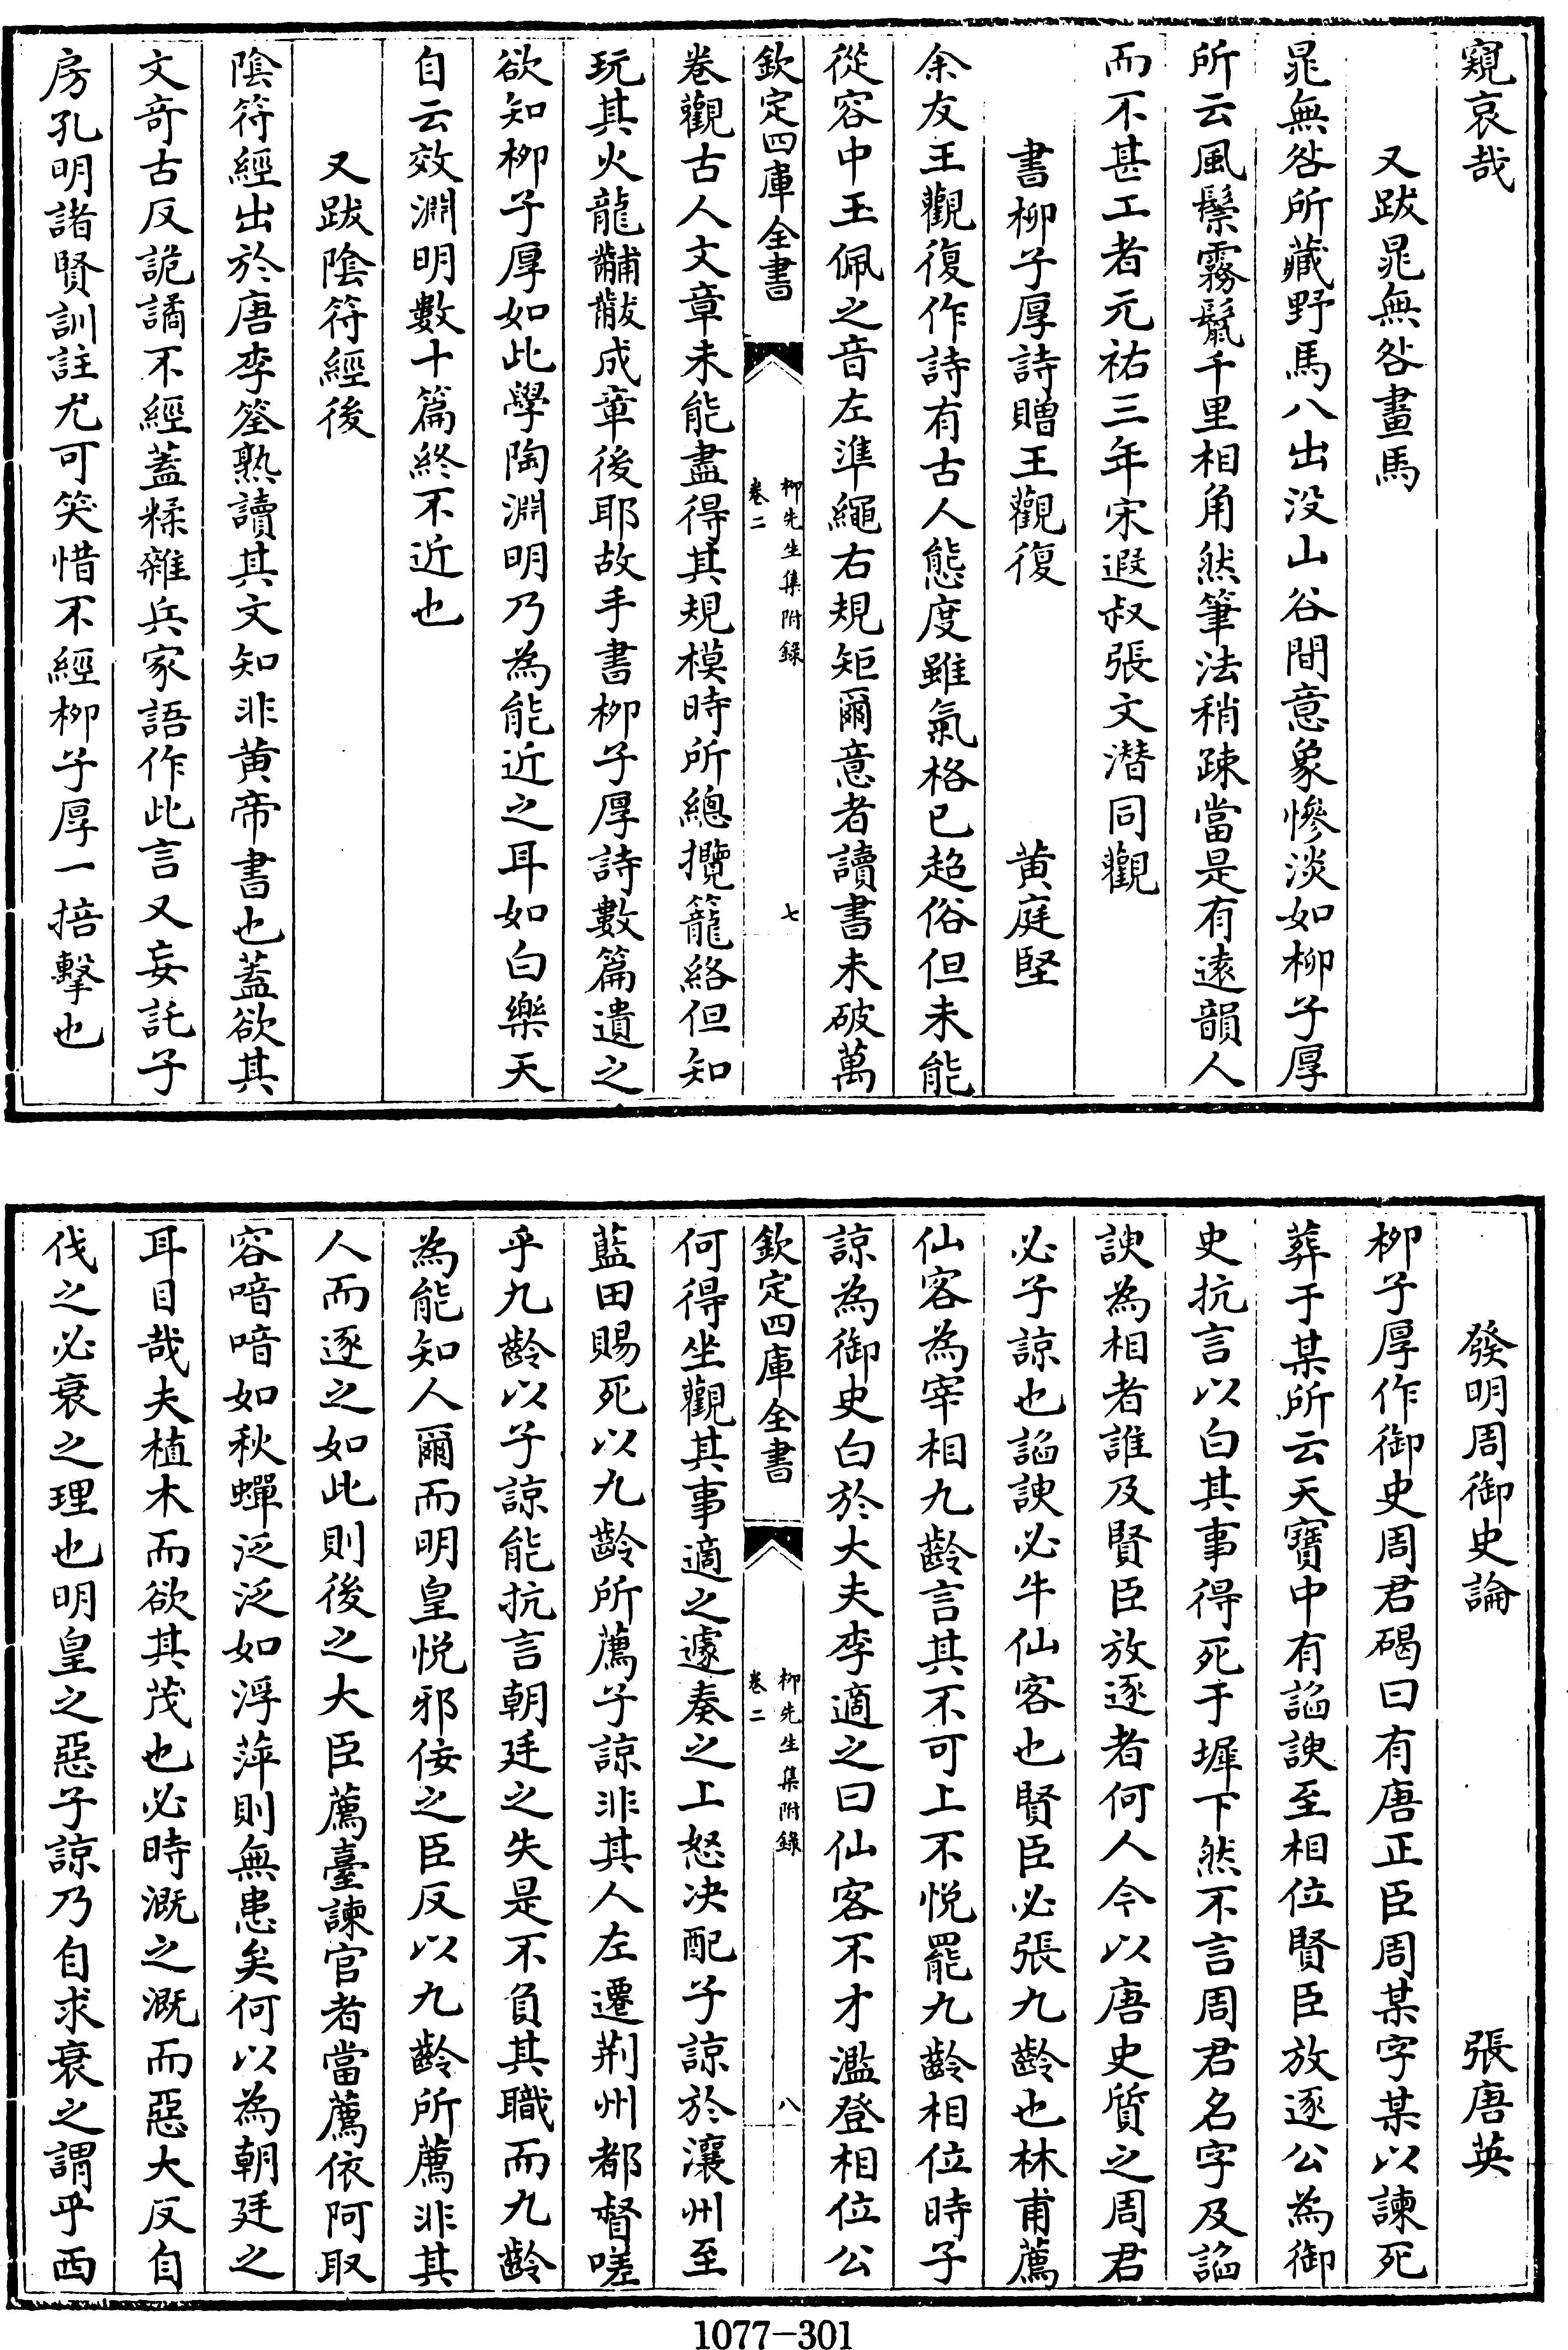 窺哀哉
又跋晁無咎畫馬
晁無咎所藏野馬八出没山谷間意象慘淡如柳子厚
所云風鬃霧鬛千里相角然筆法稍疎當是有逺韻人
而不甚工者元祐三年宋遐叔張文潛同觀
書柳子厚詩贈王觀復　黄庭堅
余友王觀復作詩有古人態度雖氣格已超俗但未能
從容中玉佩之音左準繩右規矩爾意者讀書未破萬
欽定四庫全書　柳先生集附錄　卷二　七
卷觀古人文章未能盡得其規模時所總攬籠絡但知
玩其火龍黼黻成章後耶故手書柳子厚詩數篇遺之
欲知柳子厚如此學陶淵明乃為能近之耳如白樂天
自云效淵明數十篇終不近也
又跋隂符經後
隂符經出於唐李筌熟讀其文知非黄帝書也蓋欲其
文竒古反詭譎不經蓋糅雜兵家語作此言又妄託子
房孔明諸賢訓註尤可笑惜不經柳子厚一掊擊也
發明周御史論　張唐英
柳子厚作御史周君碣曰有唐正臣周某字某以諫死
葬于某所云天寳中有謟諛至相位賢臣放逐公為御
史抗言以白其事得死于墀下然不言周君名字及謟
諛為相者誰及賢臣放逐者何人今以唐史質之周君
必子諒也謟諛必牛仙客也賢臣必張九齡也林甫薦
仙客為宰相九齡言其不可上不悦罷九齡相位時子
諒為御史白於大夫李適之曰仙客不才濫登相位公
欽定四庫全書　柳先生集附錄　卷二　八
何得坐觀其事適之遽奏之上怒决配子諒於瀼州至
藍田賜死以九齡所薦子諒非其人左遷荆州都督嗟
乎九齡以子諒能抗言朝廷之失是不負其職而九齡
為能知人爾而明皇悦邪佞之臣反以九齡所薦非其
人而逐之如此則後之大臣薦臺諫官者當薦依阿取
容喑喑如秋蟬泛泛如浮萍則無患矣何以為朝廷之
耳目哉夫植木而欲其茂也必時溉之溉而惡大反自
伐之必衰之理也明皇之惡子諒乃自求衰之謂乎西
1077-301